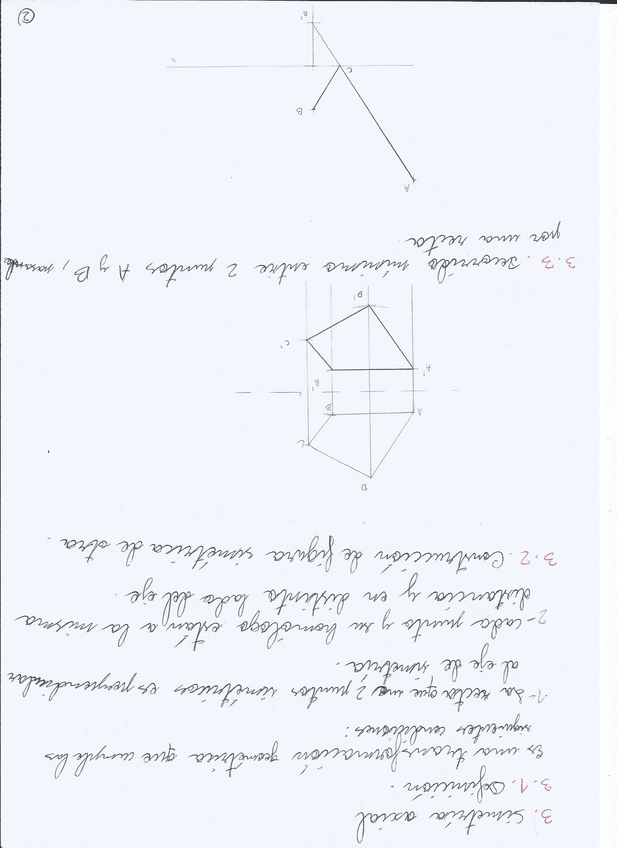 3. Simetría axial
3.1. Definición.
Es una transformación geométrica que cumple las
siguientes condiciones:
1- La recta que une 2 puntos simétricos es perpendicular
al eje de simetría.
2- Cada punto y su homólogo están a la misma
distancia y en distinto lado del eje.
3.2. Construcción de figura simétrica de otra.
D
C
B
A
B'
A'
C'
D'
3.3. Recorrido mínimo entre 2 puntos A y B, pasando
por una recta.
A
B
C
r
B'
2